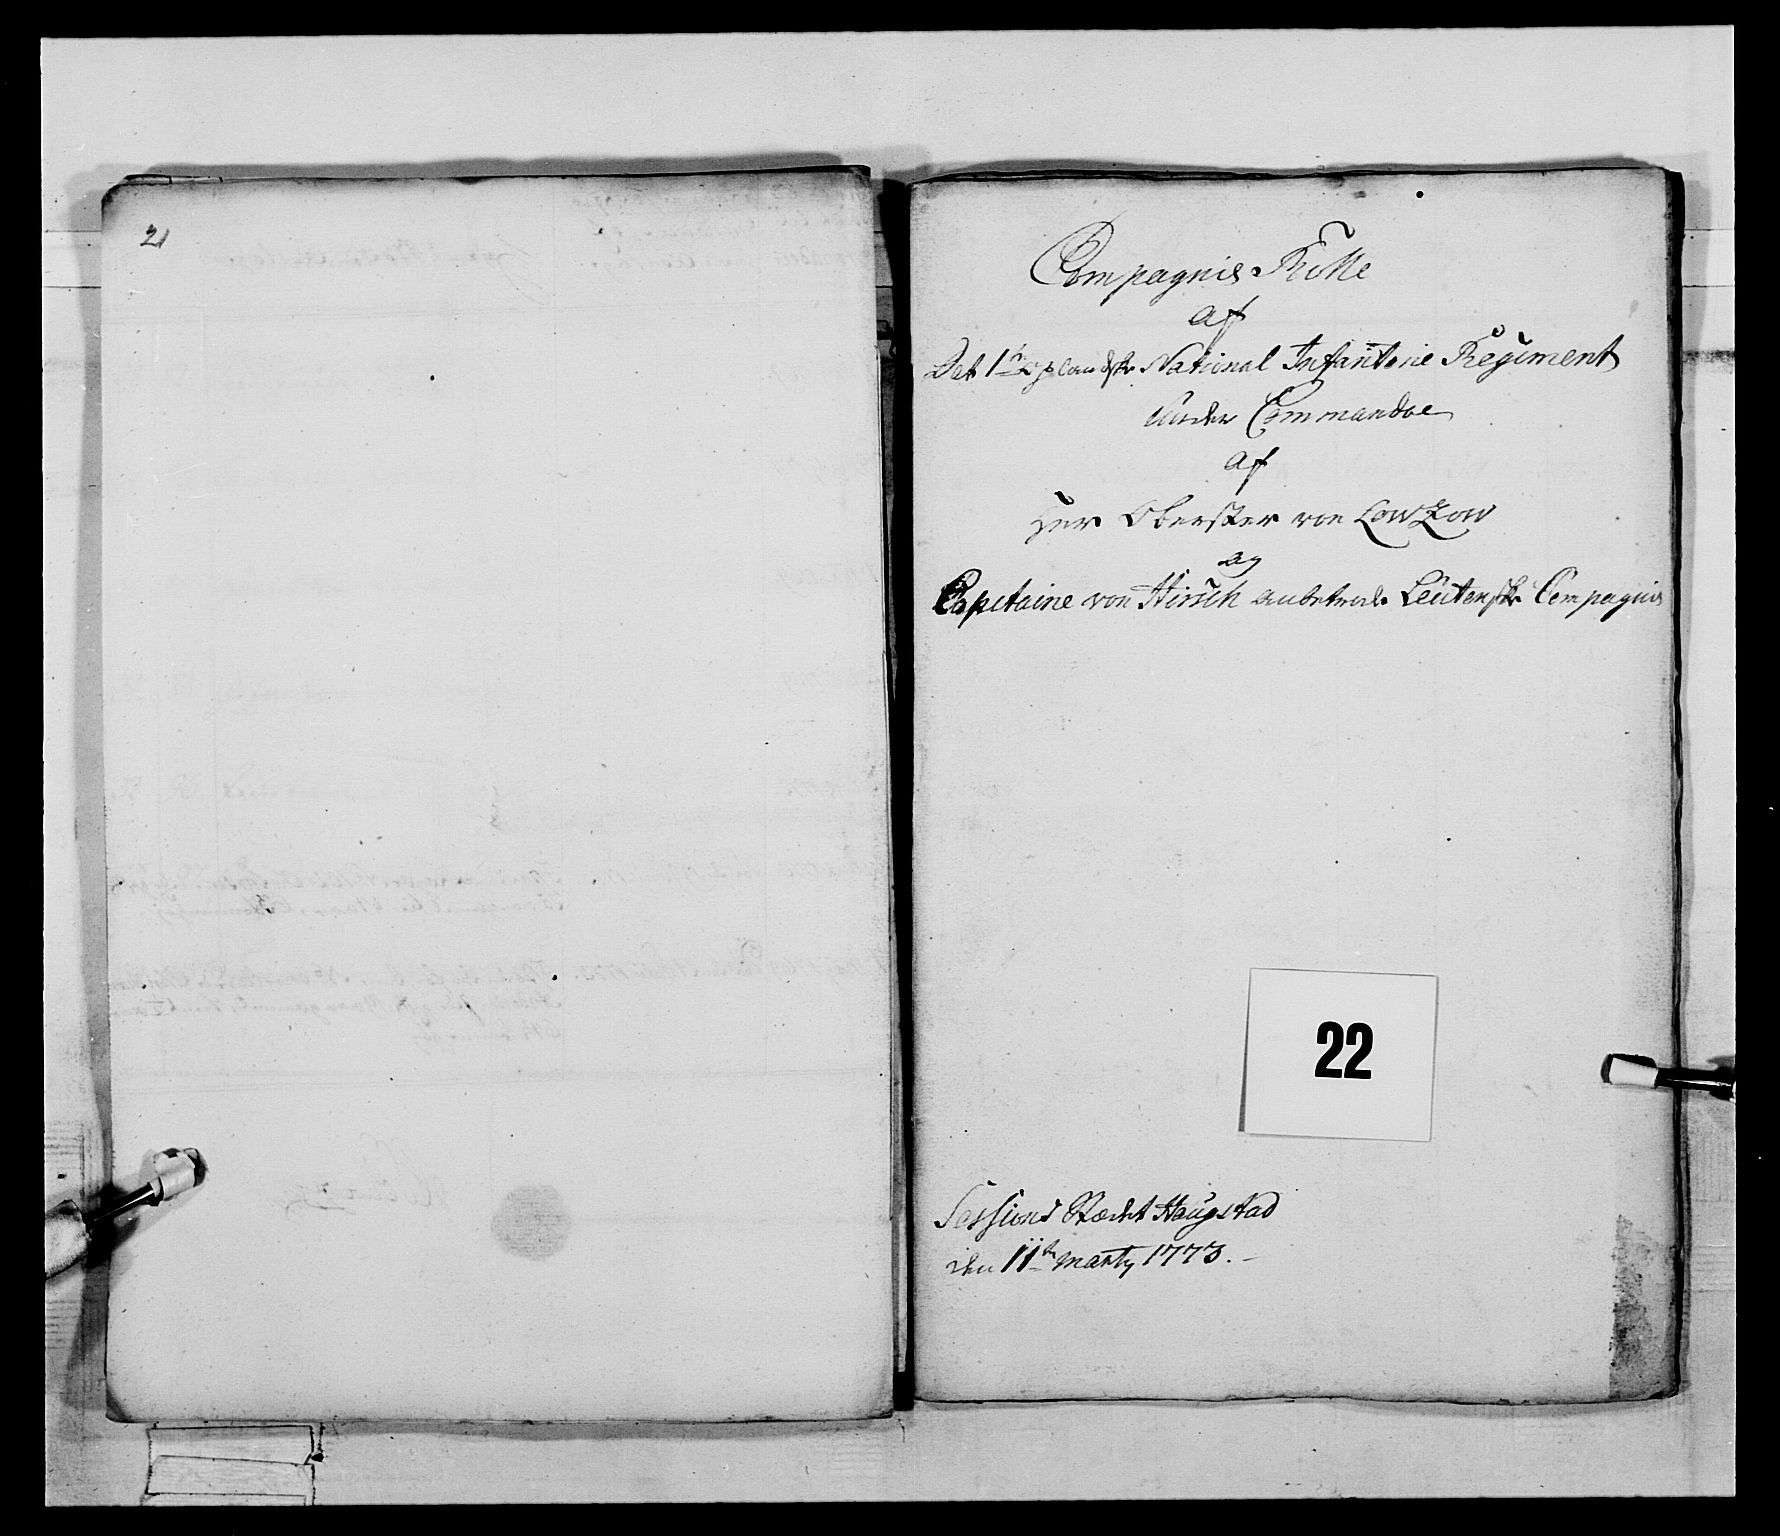 21
Compagnie Rulle
af
Det 1te Oplandske National Infanterie Regiment
under Commandoe
af
Herr Oberster von Lowzow
og
Capitaine von Hirsch anbetroede Leutenske Compagnie
22
Sessions Stædet Haugstad
den 11te Marty 1773.